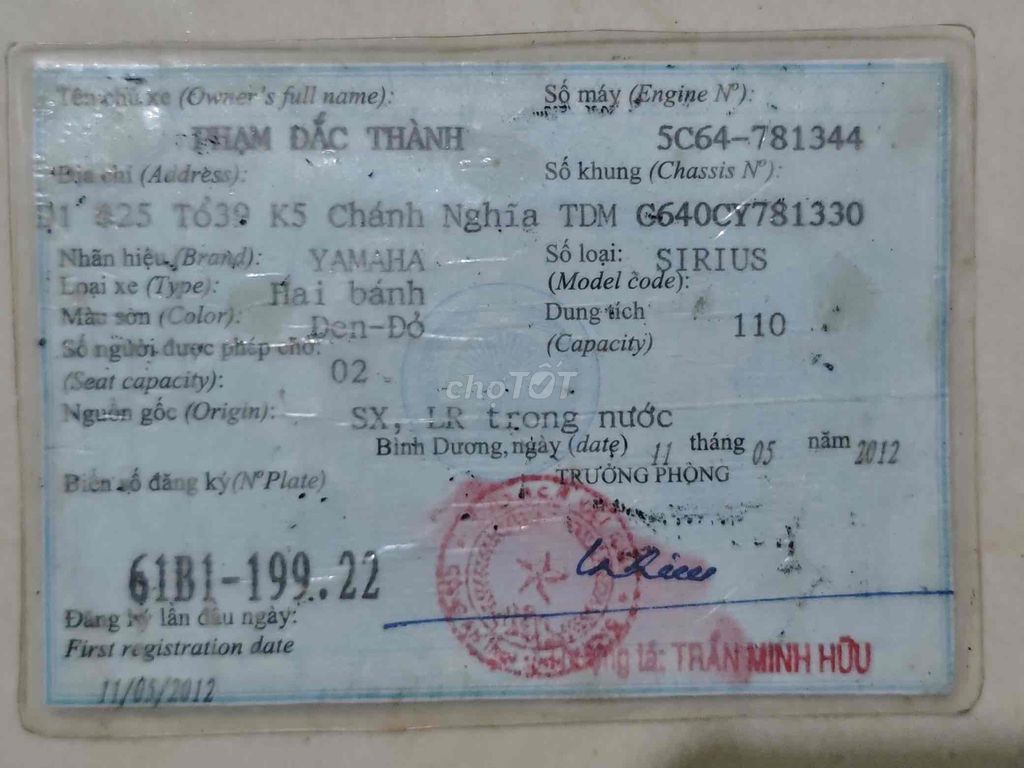 Tên chủ xe (Owner's full name):
PHẠM ĐẮC THÀNH
Địa chỉ (Address):
825 Tổ39 K5 Chánh Nghĩa TDM
Nhãn hiệu (Brand): YAMAHA
Loại xe (Type): Hai bánh
Màu sơn (Color): Đen-Đỏ
Số người được phép chở:
(Seat capacity): 02
Nguồn gốc (Origin): SX, LR trong nước
Số máy (Engine Nº):
5C64-781344
Số khung (Chassis Nº):
G640CY781330
Số loại: SIRIUS
(Model code):
Dung tích
(Capacity) 110
choTỐT
Bình Dương, ngày (date) 11 tháng 05 năm 2012
TRƯỞNG PHÒNG
Biển số đăng ký(NºPlate)
61B1-199.22
Đăng ký lần đầu ngày:
First registration date
11/05/2012
tá: TRẦN MINH HỮU